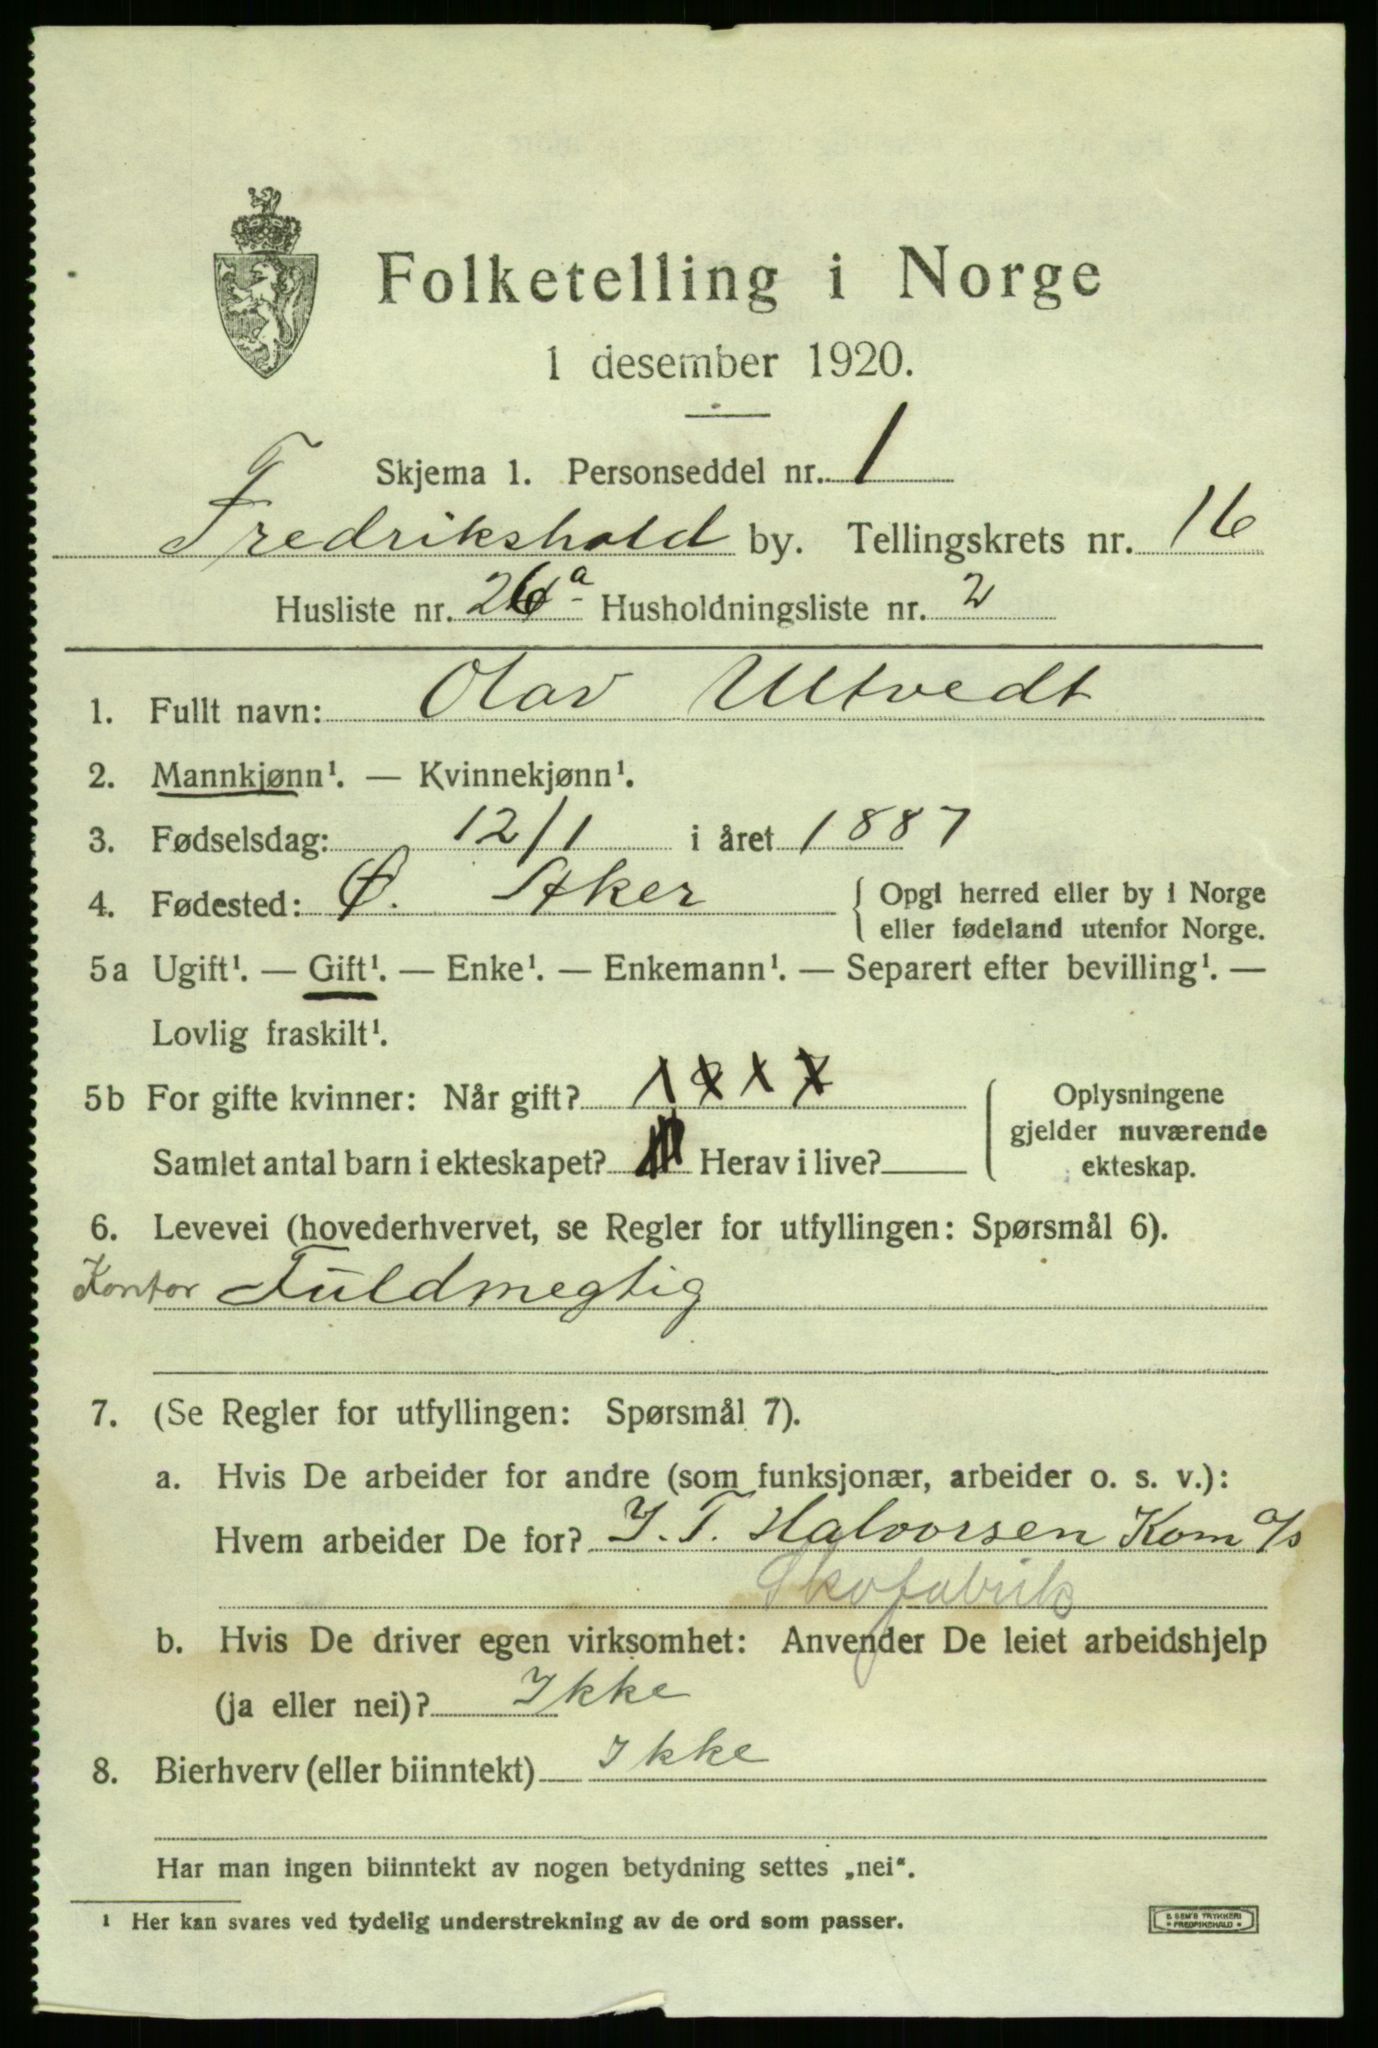 Folketelling i Norge
1 desember 1920.
Skjema 1. Personseddel nr. 1
Fredrikshald by. Tellingskrets nr. 16
Husliste nr. 26a Husholdningsliste nr. 2
1. Fullt navn: Olav Utvedt
2. Mannkjønn¹. — Kvinnekjønn¹.
3. Fødselsdag: 12/1 i året 1887
4. Fødested: Ø. Aker { Opgi herred eller by i Norge
eller fødeland utenfor Norge.
5a Ugift¹. — Gift¹. — Enke¹. — Enkemann¹. — Separert efter bevilling¹. —
Lovlig fraskilt¹.
5b For gifte kvinner: Når gift? Oplysningene
gjelder nuværende
Samlet antal barn i ekteskapet? Herav i live? ekteskap.
6. Levevei (hovederhvervet, se Regler for utfyllingen: Spørsmål 6).
Kontor Fuldmegtig
7. (Se Regler for utfyllingen: Spørsmål 7).
a. Hvis De arbeider for andre (som funksjonær, arbeider o. s. v.):
Hvem arbeider De for? J. T. Halvorsen Kom a/s
Skofabrik
b. Hvis De driver egen virksomhet: Anvender De leiet arbeidshjelp
(ja eller nei)? Ikke
8. Bierhverv (eller biinntekt) Ikke
Har man ingen biinntekt av nogen betydning settes „nei“.
¹ Her kan svares ved tydelig understrekning av de ord som passer.
E. SEM'S TRYKKERI
FREDRIKSHALD